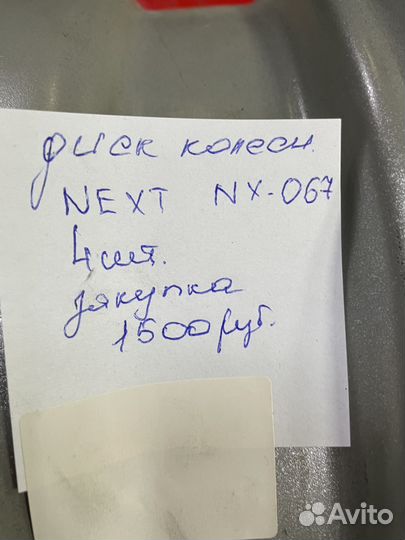 диск колесн.
NEXT NX-067
4 шт.
закупка
1500 руб.
Avito